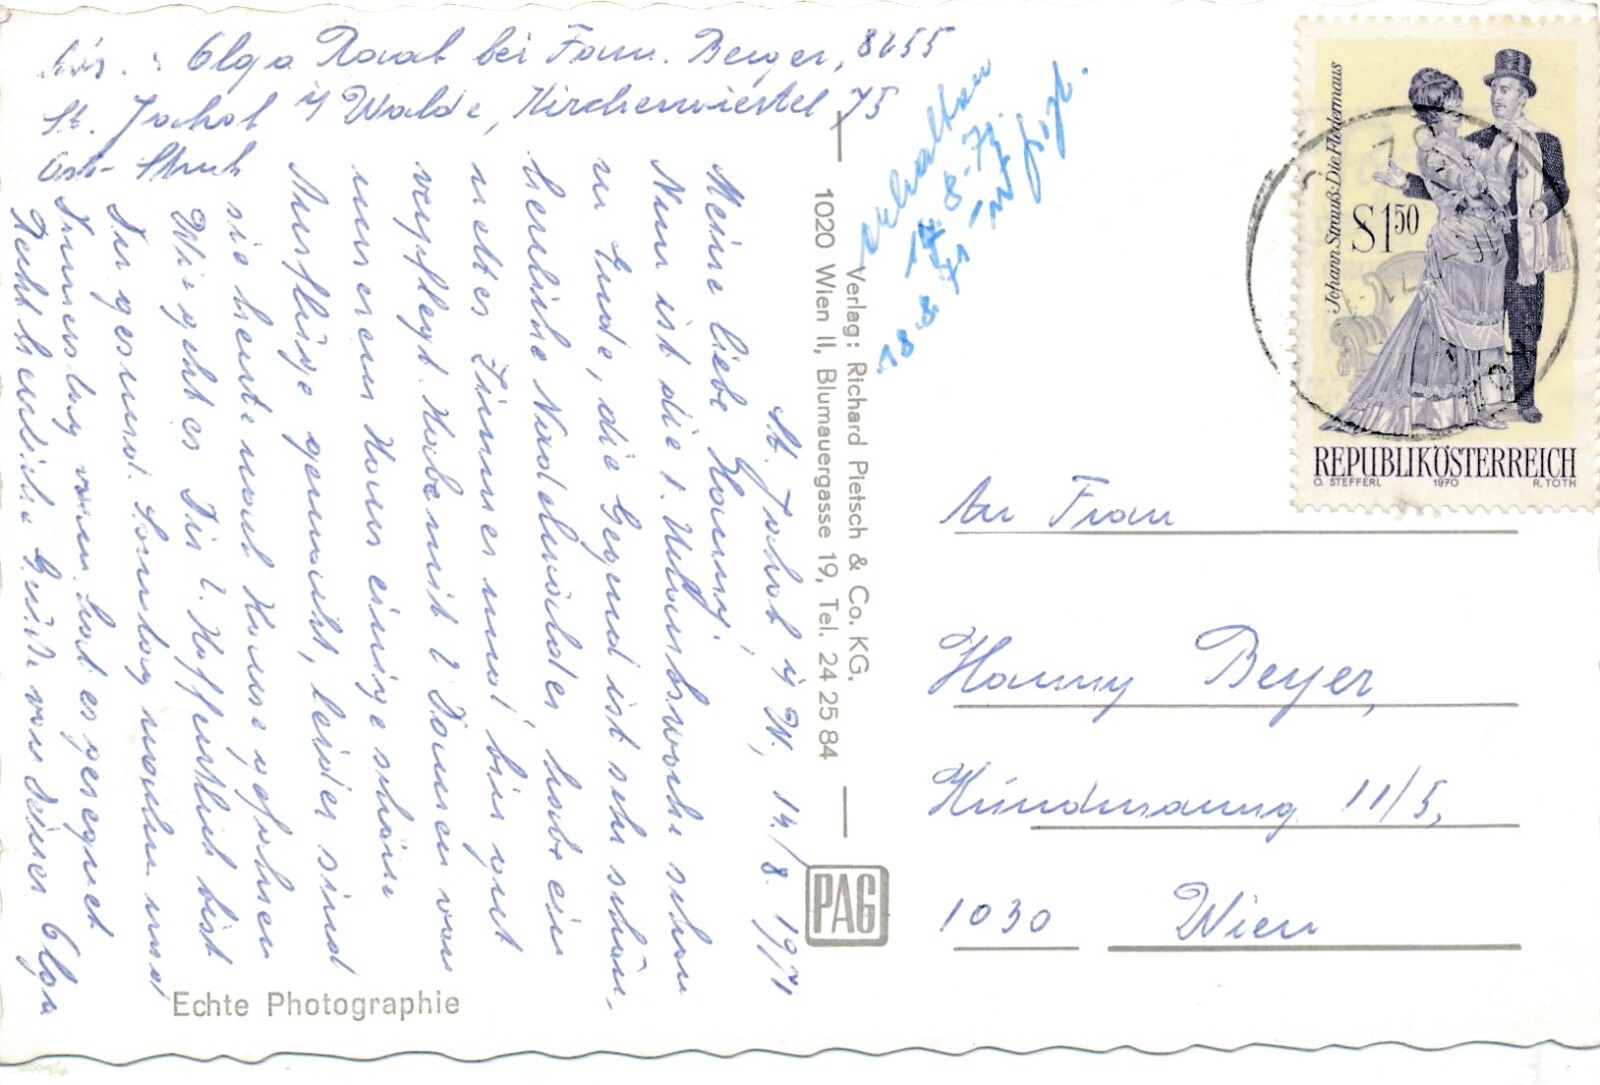 Olga Raab bei Fam. Berger, 8255
St. Jakob i/ Walde, Kirchenviertel 75
Ost-Stmk
St. Jakob i/ W, 14/8. 1971
Meine liebe Hanny,
Nun ist die 1. Urlaubswoche schon
zu Ende, die Gegend ist sehr schön,
herrliche Nadelwälder, habe ein
nettes Zimmer und bin gut
verpflegt. Habe mit 2 Damen von
unserem Haus einige schöne
Ausflüge gemacht, leider sind
sie heute nach Hause gefahren
Wie geht es Dir? Hoffentlich bist
Du gesund. Sonntag und
Donnerstag hat es geregnet
Recht herzliche Grüße von Deiner Olga
erhalten
18.8.71
Verlag: Richard Pietsch & Co. KG,
1020 Wien II, Blumauergasse 19, Tel. 24 25 84
PAG
Echte Photographie
Johann Strauß: Die Fledermaus
S 1.50
REPUBLIK ÖSTERREICH
O. STEFFERL 1970 R. TOTH
An Frau
Hanny Beyer,
Hündmanng 11/5,
1030 Wien